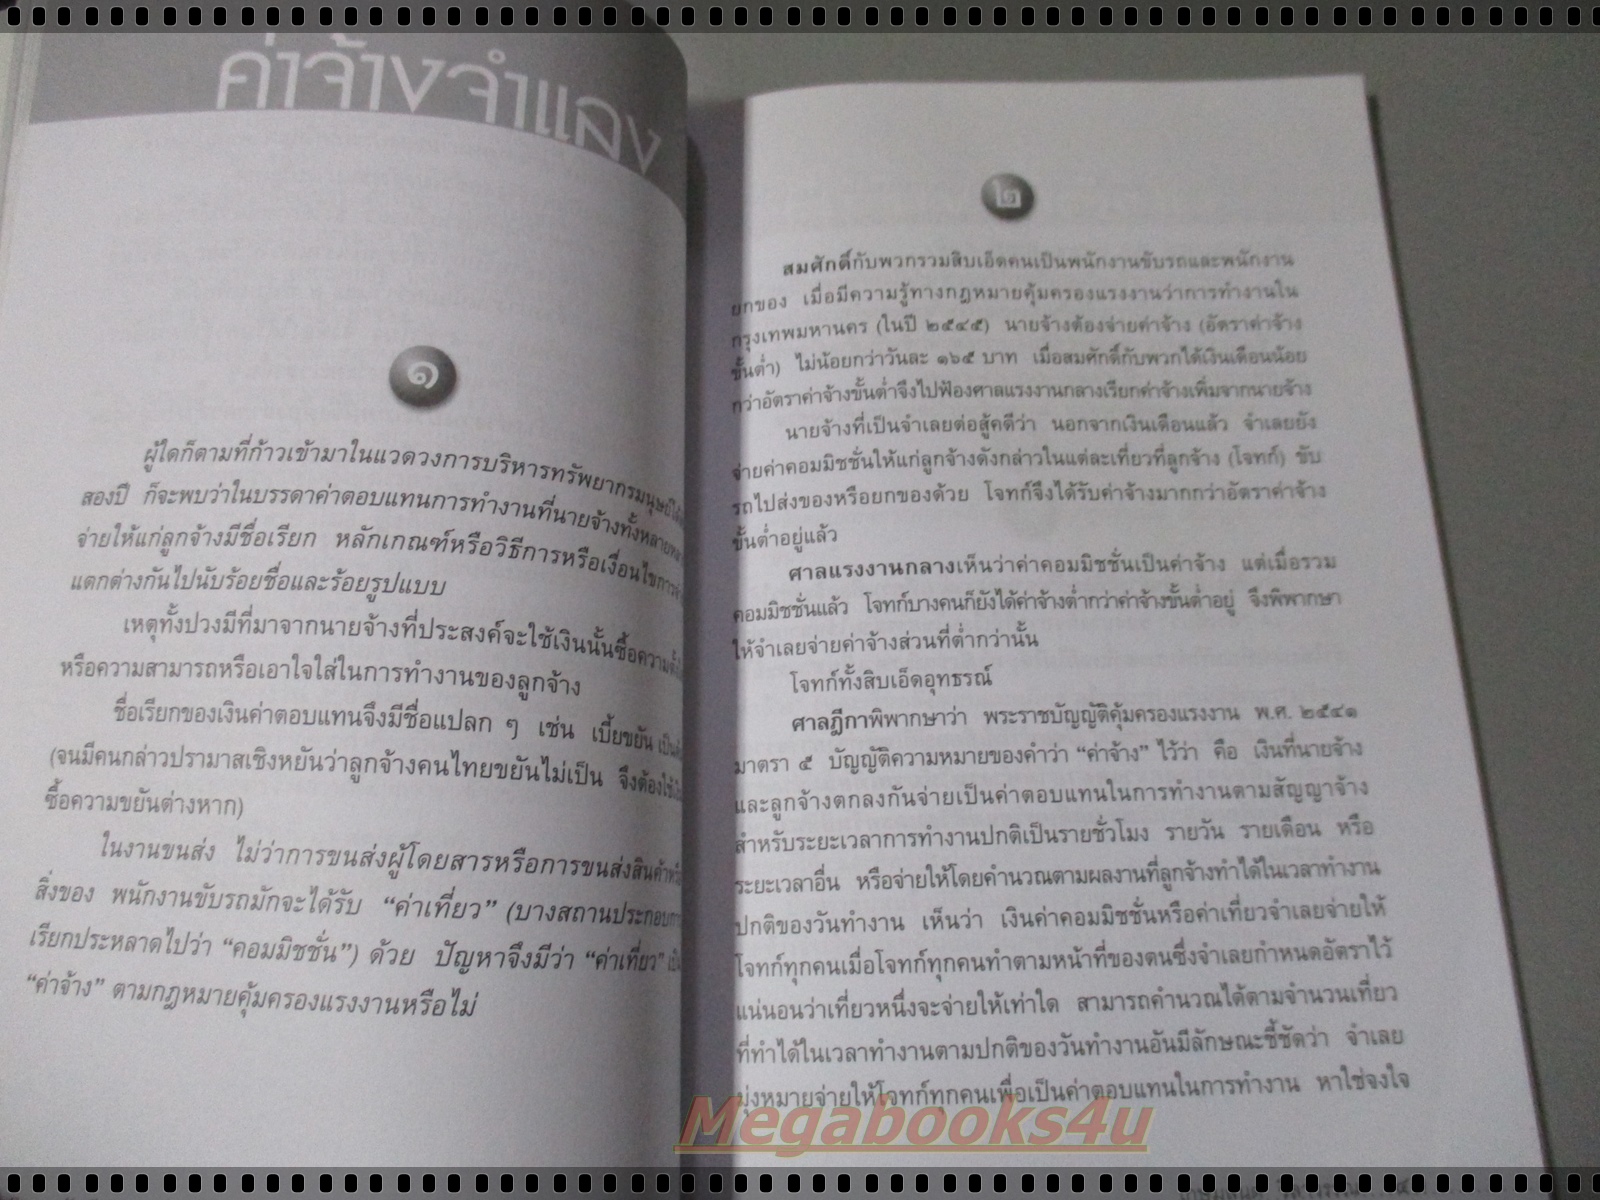 ค่าจ้างจำแลง
๑
ผู้ใดก็ตามที่ก้าวเข้ามาในแวดวงการบริหารทรัพยากรมนุษย์
สองปี ก็จะพบว่าในบรรดาค่าตอบแทนการทำงานที่นายจ้างทั้งหลาย
จ่ายให้แก่ลูกจ้างมีชื่อเรียก หลักเกณฑ์หรือวิธีการหรือเงื่อนไขการ
แตกต่างกันไปนับร้อยชื่อและร้อยรูปแบบ
เหตุทั้งปวงมีที่มาจากนายจ้างที่ประสงค์จะใช้เงินนั้นซื้อความ
หรือความสามารถหรือเอาใจใส่ในการทำงานของลูกจ้าง
ชื่อเรียกของเงินค่าตอบแทนจึงมีชื่อแปลก ๆ เช่น เบี้ยขยัน
(จนมีคนกล่าวปรามาสเชิงหยันว่าลูกจ้างคนไทยขยันไม่เป็น จึงต้องใช้
ซื้อความขยันต่างหาก)
ในงานขนส่ง ไม่ว่าการขนส่งผู้โดยสารหรือการขนส่งสินค้า
สิ่งของ พนักงานขับรถมักจะได้รับ “ค่าเที่ยว” (บางสถานประกอบ
เรียกประหลาดไปว่า “คอมมิชชั่น”) ด้วย ปัญหาจึงมีว่า “ค่าเที่ยว”
“ค่าจ้าง” ตามกฎหมายคุ้มครองแรงงานหรือไม่
๒
สมศักดิ์กับพวกรวมสิบเอ็ดคนเป็นพนักงานขับรถและพนักงาน
ยกของ เมื่อมีความรู้ทางกฎหมายคุ้มครองแรงงานว่าการทำงานใน
กรุงเทพมหานคร (ในปี ๒๕๔๕) นายจ้างต้องจ่ายค่าจ้าง (อัตราค่าจ้าง
ขั้นต่ำ) ไม่น้อยกว่าวันละ ๑๖๕ บาท เมื่อสมศักดิ์กับพวกได้เงินเดือนน้อย
กว่าอัตราค่าจ้างขั้นต่ำจึงไปฟ้องศาลแรงงานกลางเรียกค่าจ้างเพิ่มจากนายจ้าง
นายจ้างที่เป็นจำเลยต่อสู้คดีว่า นอกจากเงินเดือนแล้ว จำเลยยัง
จ่ายค่าคอมมิชชั่นให้แก่ลูกจ้างดังกล่าวในแต่ละเที่ยวที่ลูกจ้าง (โจทก์) ขับ
รถไปส่งของหรือยกของด้วย โจทก์จึงได้รับค่าจ้างมากกว่าอัตราค่าจ้าง
ขั้นต่ำอยู่แล้ว
ศาลแรงงานกลางเห็นว่าค่าคอมมิชชั่นเป็นค่าจ้าง แต่เมื่อรวม
คอมมิชชั่นแล้ว โจทก์บางคนก็ยังได้ค่าจ้างต่ำกว่าค่าจ้างขั้นต่ำอยู่ จึงพิพากษา
ให้จำเลยจ่ายค่าจ้างส่วนที่ต่ำกว่านั้น
โจทก์ทั้งสิบเอ็ดอุทธรณ์
ศาลฎีกาพิพากษาว่า พระราชบัญญัติคุ้มครองแรงงาน พ.ศ. ๒๕๔๑
มาตรา ๕ บัญญัติความหมายของคำว่า “ค่าจ้าง” ไว้ว่า คือ เงินที่นายจ้าง
และลูกจ้างตกลงกันจ่ายเป็นค่าตอบแทนในการทำงานตามสัญญาจ้าง
สำหรับระยะเวลาการทำงานปกติเป็นรายชั่วโมง รายวัน รายเดือน หรือ
ระยะเวลาอื่น หรือจ่ายให้โดยคำนวณตามผลงานที่ลูกจ้างทำได้ในเวลาทำงาน
ปกติของวันทำงาน เห็นว่า เงินค่าคอมมิชชั่นหรือค่าเที่ยวจำเลยจ่ายให้
โจทก์ทุกคนเมื่อโจทก์ทุกคนทำตามหน้าที่ของตนซึ่งจำเลยกำหนดอัตราไว้
แน่นอนว่าเที่ยวหนึ่งจะจ่ายให้เท่าใด สามารถคำนวณได้ตามจำนวนเที่ยว
ที่ทำได้ในเวลาทำงานตามปกติของวันทำงานอันมีลักษณะชี้ชัดว่า จำเลย
มุ่งหมายจ่ายให้โจทก์ทุกคนเพื่อเป็นค่าตอบแทนในการทำงาน หาใช่จงใจ
Megabooks4u